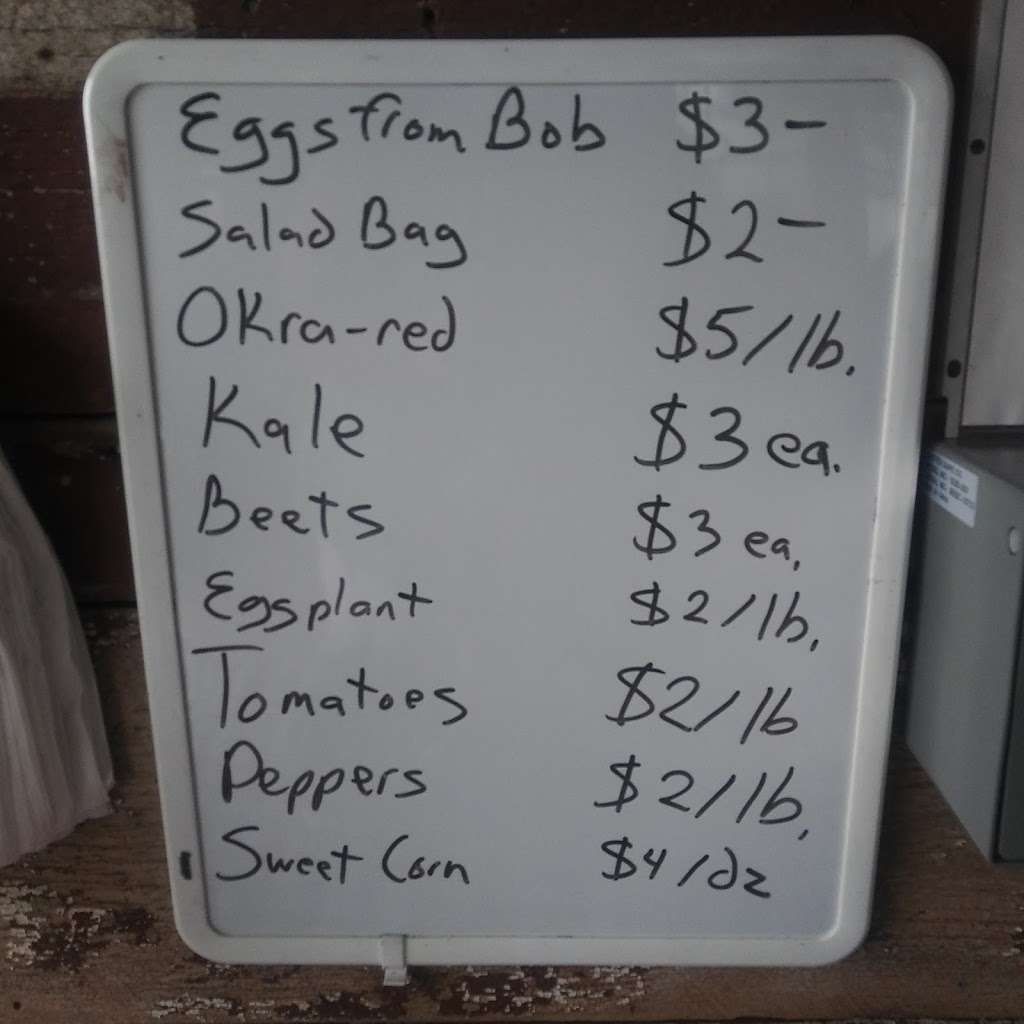 Eggs from Bob $3-
Salad Bag $2-
Okra-red $5/lb.
Kale $3 ea.
Beets $3 ea.
Eggplant $2/lb.
Tomatoes $2/lb
Peppers $2/lb.
Sweet Corn $4/dz